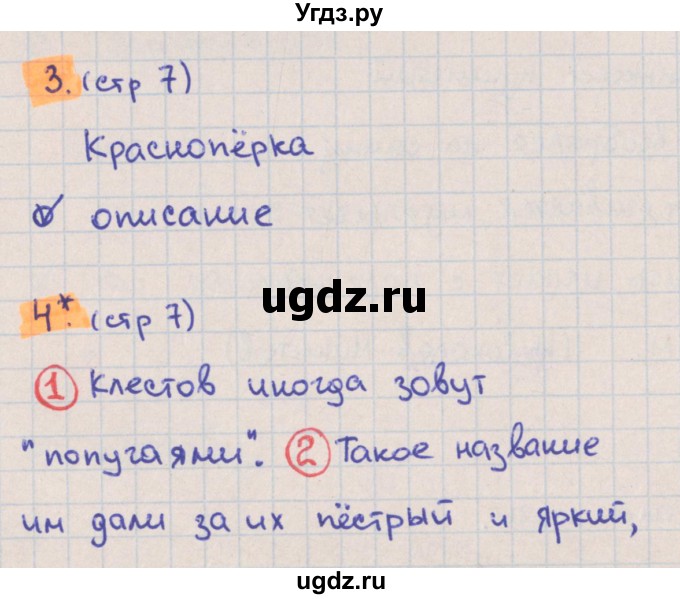 Угдз.ру
3. (стр 7)
Краснопёрка
описание
ugdz.ru
4*. (стр 7)
1 Клестов иногда зовут
"попугаями". 2 Такое название
им дали за их пёстрый и яркий,
ugdz.ru